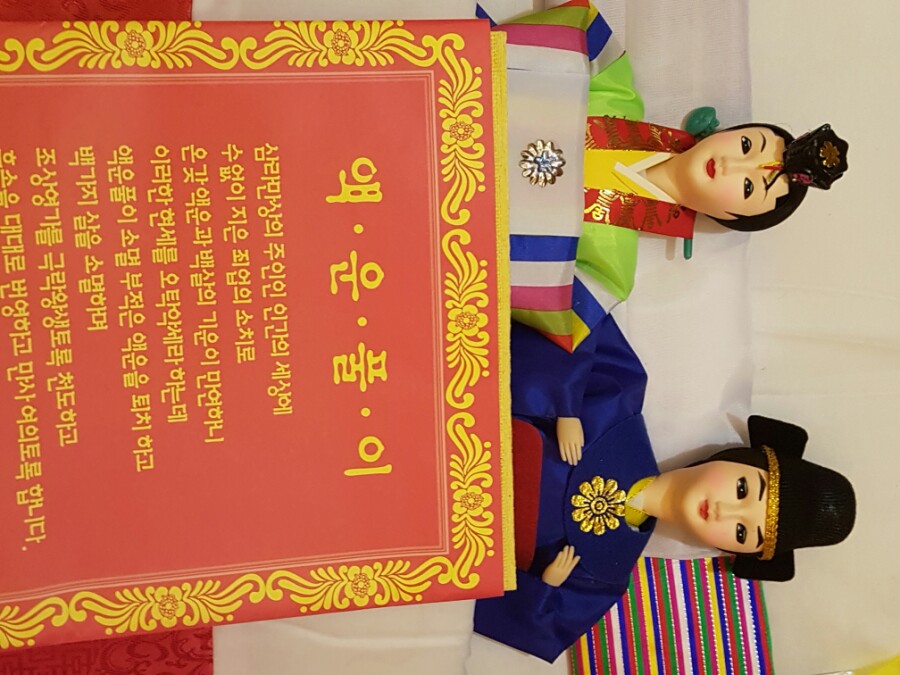 액·운·풀·이
삼라만상의 주인인 인간의 세상에
수없이 지은 죄업의 소치로
온갖액운과 백살의 기운이 만연하니
이러한 현세를 오탁악세라 하는데
액운풀이 소멸 부적은 액운을 퇴치 하고
백가지 살을 소멸하며
조상영가를 극락왕생토록 천도하고
후손을 대대로 번영하고 만사 여의토록 합니다.